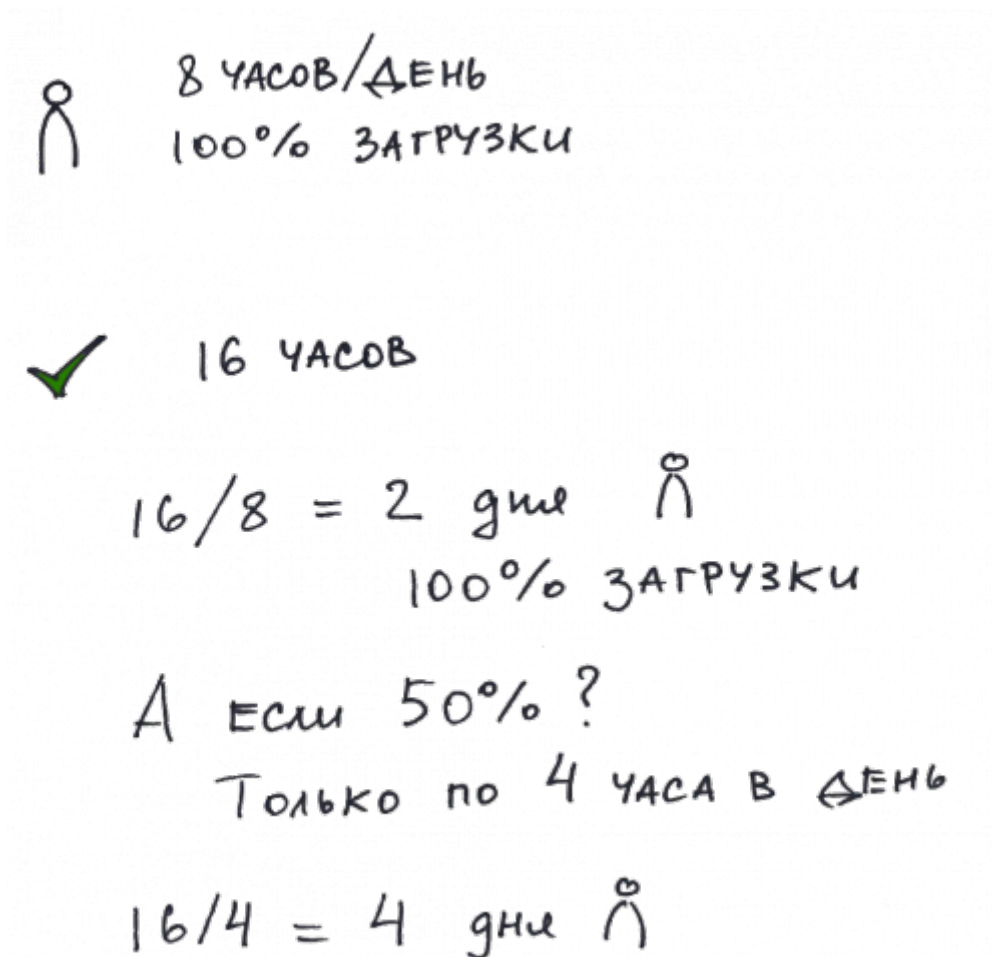 8 ЧАСОВ/ДЕНЬ
100% ЗАГРУЗКИ
16 ЧАСОВ
16/8 = 2 дня
100% ЗАГРУЗКИ
А ЕСЛИ 50%?
ТОЛЬКО ПО 4 ЧАСА В ДЕНЬ
16/4 = 4 дня